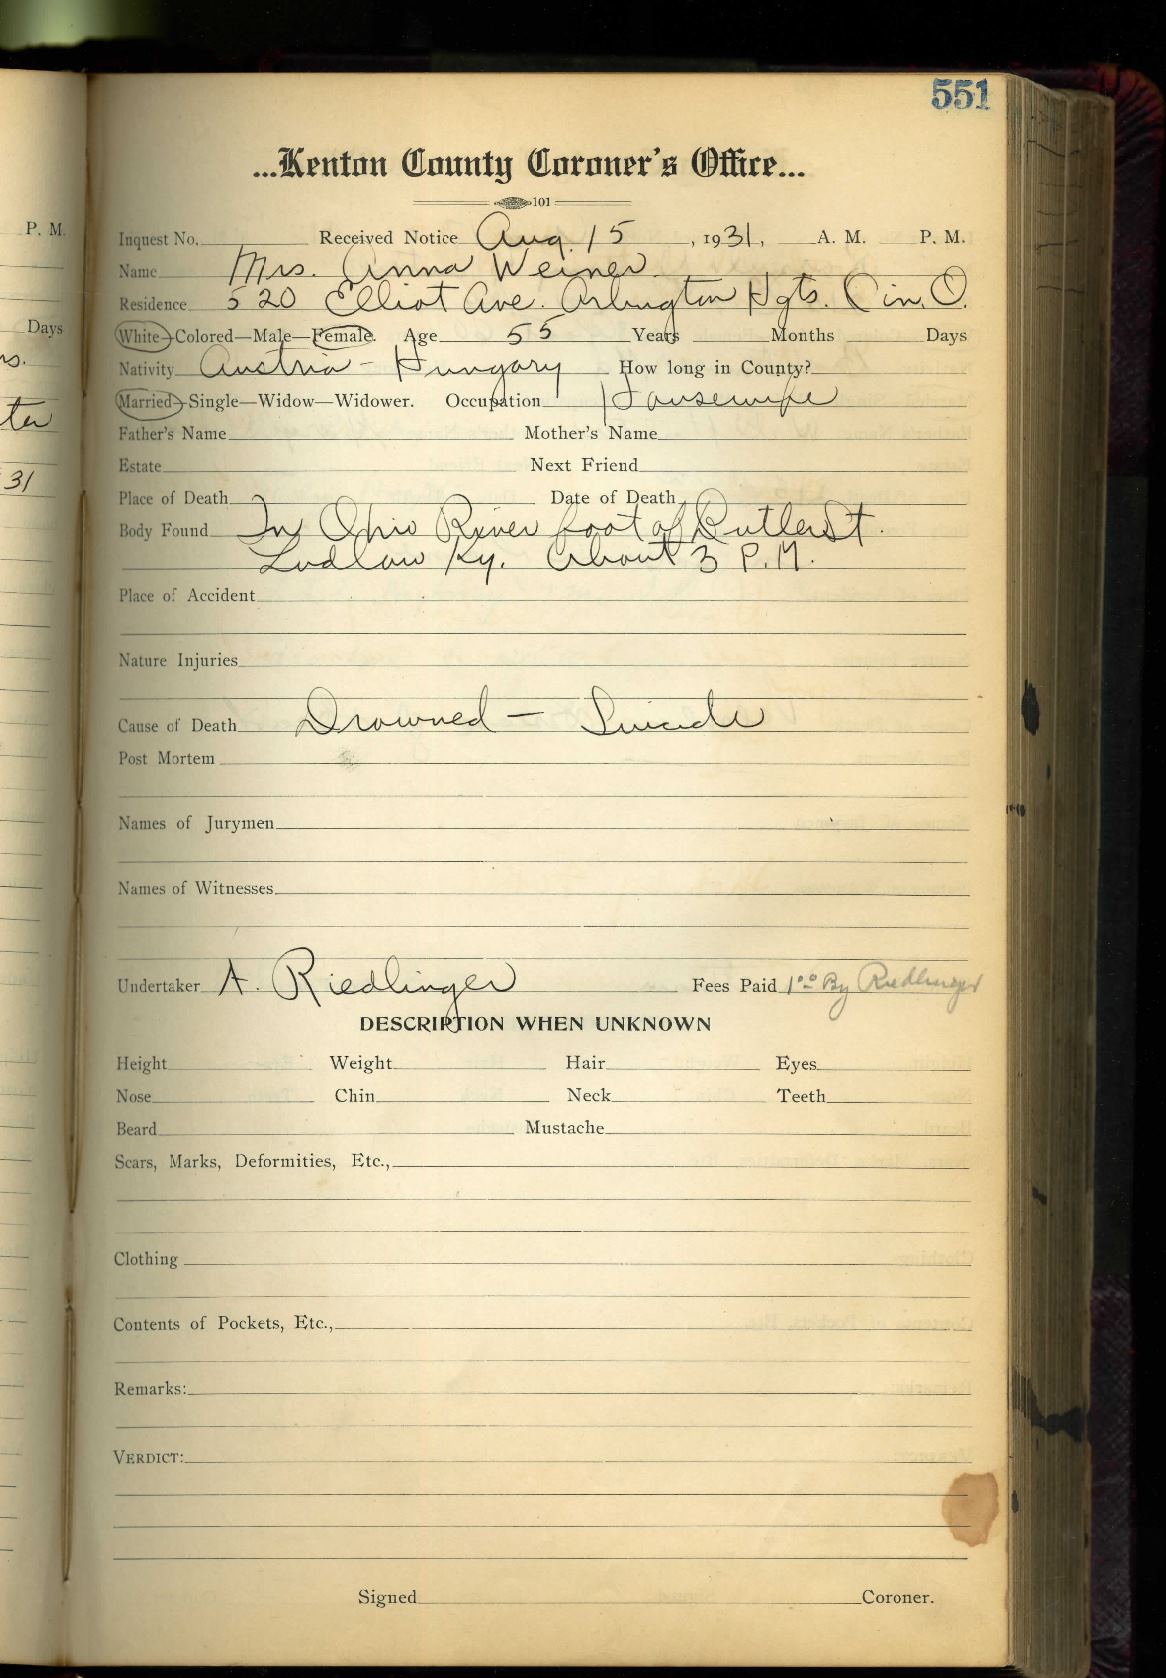 551
P. M.
...Kenton County Coroner's Office...
101
Inquest No. Received Notice Aug. 15, 1931, A. M. P. M.
Name Mrs. Anna Weiner
Residence 520 Elliot Ave. Arlington Hgts. Cin. O.
Days
White—Colored—Male—Female. Age 55 Years Months Days
Nativity Austria - Hungary How long in County?
rs.
Married—Single—Widow—Widower. Occupation Housewife
ter
Father's Name Mother's Name
Estate Next Friend
31
Place of Death Date of Death
Body Found In Ohio River foot of Butler St.
Ludlow Ky. About 3 P.M.
Place of Accident
Nature Injuries
Cause of Death Drowned — Suicide
Post Mortem
Names of Jurymen
Names of Witnesses
Undertaker A. Riedlinger Fees Paid 1.00 By Riedlinger
DESCRIPTION WHEN UNKNOWN
Height Weight Hair Eyes
Nose Chin Neck Teeth
Beard Mustache
Scars, Marks, Deformities, Etc.,
Clothing
Contents of Pockets, Etc.,
Remarks:
VERDICT:
Signed Coroner.